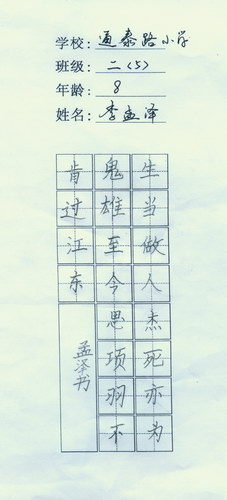 学校：通泰路小学
班级：二（5）
年龄：8
姓名：李孟泽
生当做人杰死亦为
鬼雄至今思项羽不
肯过江东
孟泽书